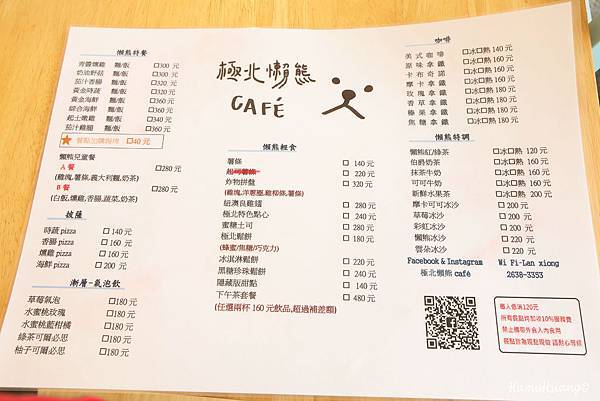 極北懶熊
CAFÉ
懶熊特餐
青醬燻雞 麵/飯 □300 元
奶油野菇 麵/飯 □300 元
茄汁香腸 麵/飯 □320 元
黃金時蔬 麵/飯 □320 元
黃金海鮮 麵/飯 □360 元
綜合海鮮 麵/飯 □360 元
起士燻雞 麵/飯 □340 元
茄汁雞腿 麵/飯 □340 元
餐點加購焗烤 □40元
懶熊兒童餐
A 餐 □280 元
(雞塊,薯條,義大利麵,奶茶)
B 餐 □280 元
(白飯,燻雞,香腸,蔬菜,奶茶)
披薩
時蔬 pizza □140 元
香腸 pizza □160 元
燻雞 pizza □160 元
海鮮 pizza □200 元
漸層-氣泡飲
草莓氣泡 □180 元
水蜜桃玫瑰 □180元
水蜜桃藍柑橘 □180元
綠茶可爾必思 □180元
柚子可爾必思 □180元
懶熊輕食
薯條 □ 140 元
起司薯條 □ 220 元
炸物拼盤 □ 320 元
(雞塊,洋蔥圈,雞柳條,薯條)
紐澳良雞翅 □ 280 元
極北特色點心 □ 240 元
蜜糖土司 □ 280 元
極北鬆餅 □ 180 元
(蜂蜜/焦糖/巧克力)
冰淇淋鬆餅 □ 220元
黑糖珍珠鬆餅 □ 240元
隱藏版甜點 □ 240元
下午茶套餐 □ 480元
(任選兩杯 160 元飲品,超過補差額)
咖啡
美式咖啡 □冰□熱 140 元
原味拿鐵 □冰□熱 160 元
卡布奇諾 □冰□熱 160 元
摩卡拿鐵 □冰□熱 180 元
玫瑰拿鐵 □冰□熱 180 元
香草拿鐵 □冰□熱 180 元
榛果拿鐵 □冰□熱 180 元
焦糖拿鐵 □冰□熱 180 元
懶熊特調
懶熊紅/綠茶 □冰□熱 120 元
伯爵奶茶 □冰□熱 160 元
抹茶牛奶 □冰□熱 160 元
可可牛奶 □冰□熱 160 元
新鮮水果茶 □冰□熱 200 元
摩卡可可冰沙 □ 200 元
草莓冰沙 □ 200 元
彩虹冰沙 □ 200 元
懶熊冰沙 □ 220 元
雲朵冰沙 □ 220 元
Facebook & Instagram Wi Fi-Lan xiong
極北懶熊 café 2638-3353
每人低消120元
所有餐點均加收10%服務費
禁止攜帶外食入內食用
餐點皆為現點現做 請耐心等候
KamiHuang©